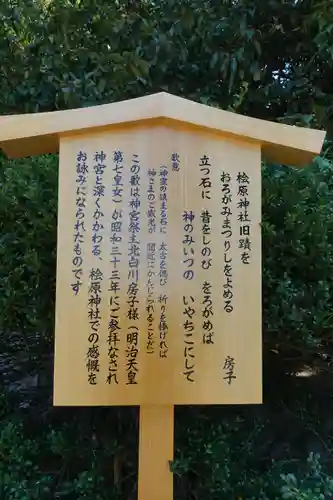 桧原神社旧蹟を
おろがみまつりしをよめる
房子
立つ石に　昔をしのび　をろがめば
神のみいつの　いやちこにして
歌意
（神霊の鎮まる石に　太古を偲び　祈りを捧げれば
神さまのご威光が　間近にかんじられることだ）
この歌は神宮祭主北白川房子様（明治天皇
第七皇女）が昭和三十三年にご参拝なされ
神宮と深くかかわる、桧原神社での感慨を
お詠みになられたものです